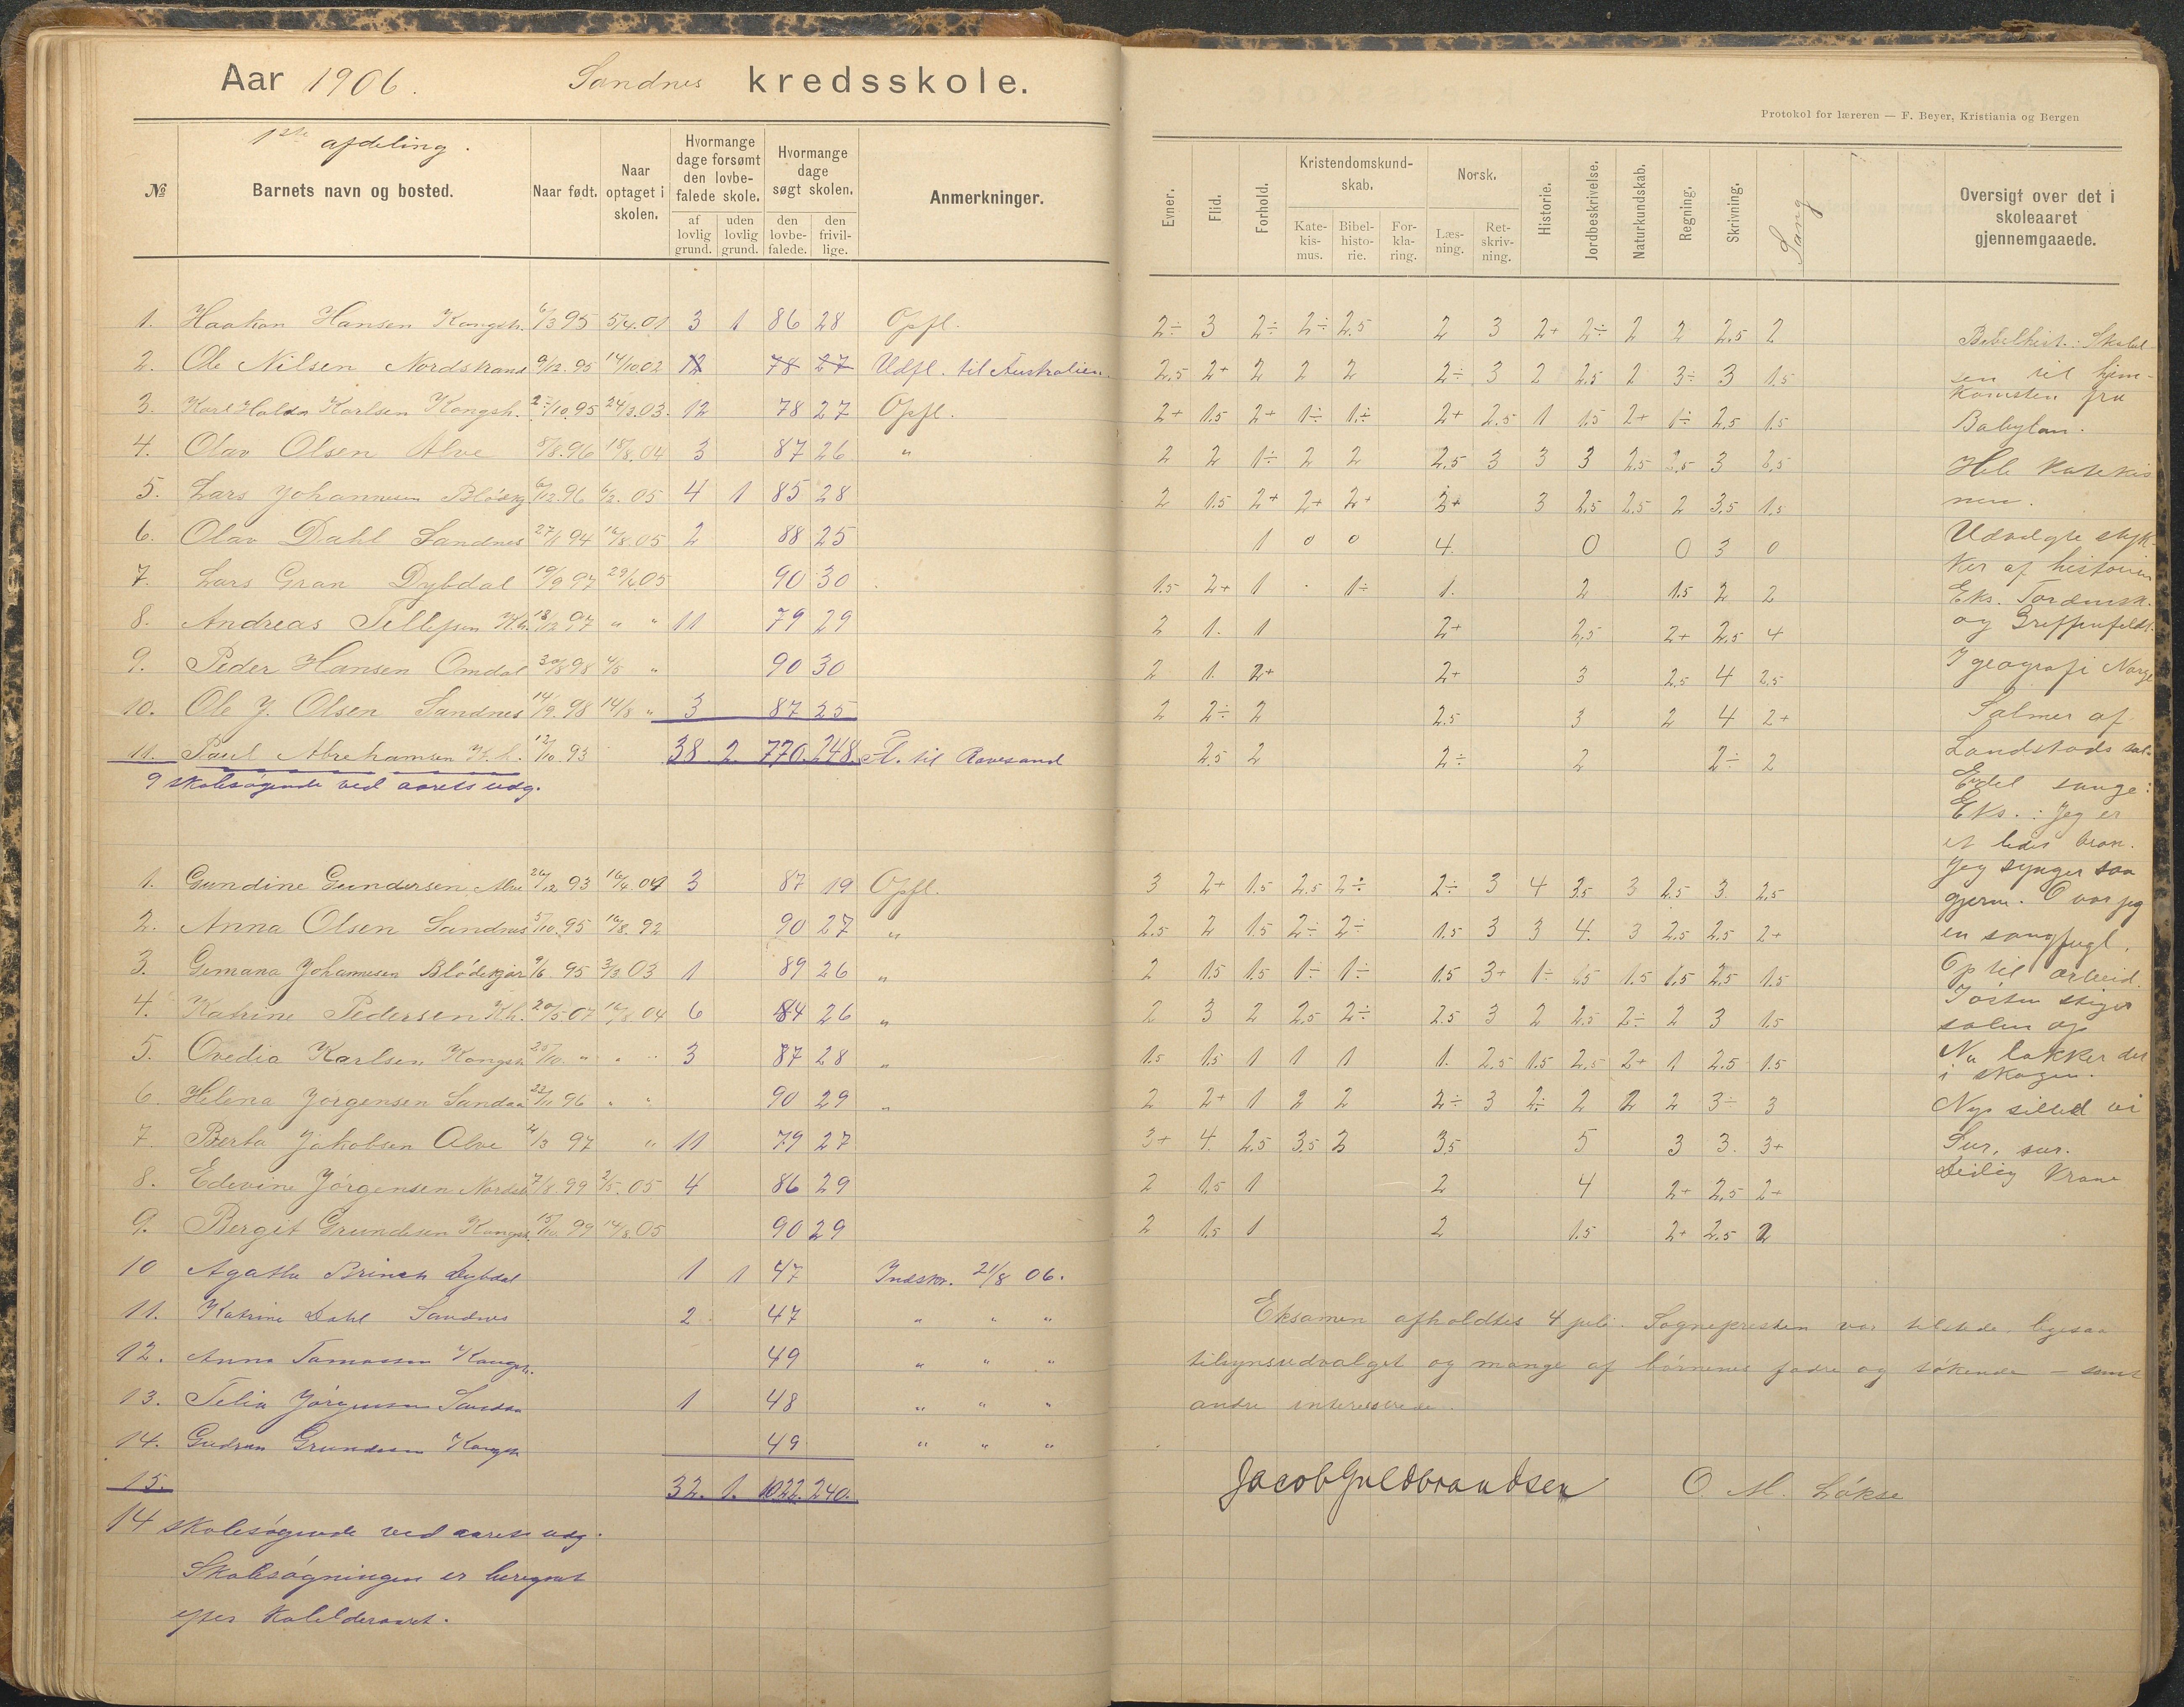 Aar 1906. Sandnes kredsskole.
Protokol for læreren — F. Beyer, Kristiania og Bergen
1ste afdeling.
№ Barnets navn og bosted. Naar født. Naar optaget i skolen. Hvormange dage forsømt den lovbefalede skole. af lovlig grund. uden lovlig grund. Hvormange dage søgt skolen. den lovbefalede. den frivillige. Anmerkninger.
Evner. Flid. Forhold. Kristendomskundskab. Katekismus. Bibelhistorie. Forklaring. Norsk. Læsning. Retskrivning. Historie. Jordbeskrivelse. Naturkundskab. Regning. Skrivning. Sang Oversigt over det i skoleaaret gjennemgaaede.
1. Haakon Hansen Kongsh. 6/3 95 5/4.01 3 1 86 28 Opfl.
2. Ole Nilsen Nordstrand 9/12.95 14/10 02 12 78 27 Udfl. til Australien.
3. Karl Karlsen Kongsh. 27/10.95 24/3.03. 12 78 27 Opfl.
4. Olav Olsen Alve 5/8.96 18/8.04 3 87 26 "
5. Lars Johannesen 6/12.96 6/2.05 4 1 85 28
6. Olav Dahl Sandnes 27/11 94 16/8.05 2 88 25
7. Lars Gran Dybdal 19/9 97 29/4.05 90 30
8. Andreas Tellefsen K.h. 18/12 97 " " 11 79 29
9. Peder Hansen Omdal 30/8 98 4/5 " 90 30
10. Ole J. Olsen Sandnes 14/9.98 14/8 " 3 87 25
11. Paul Abrahamsen K.h. 12/10.93 38. 2. 770. 248. Fl. til Ravesand
9 skolesøgende ved aarets udg.
1. Gundine Gundersen Alve 26/12 93 16/4.04 3 87 19 Opfl.
2. Anna Olsen Sandnes 5/10.95 16/8.92 90 27 "
3. Gemana Johannesen Blödekjær 9/6.95 3/3 03 1 89 26 "
4. Katrine Pedersen Kh. 20/5 07 16/8 04 6 84 26 "
5. Ovedia Karlsen Kongsh 25/10. " " " 3 87 28 "
6. Helena Jörgensen Sandaa 22/11 96 " " 90 29 "
7. Berta Jakobsen Alve 4/3 97 " 11 79 27
8. Edevine Jörgensen 7/8.99 2/5.05 4 86 29
9. Bergit Grundesen Kongsh. 15/10.99 14/8.05 90 29
10 Agathe Brinch Dybdal 1 1 47 Indskr. 21/8 06.
11. Katrine Dahl Sandnes 2 47 " " "
12. Anna Tomassen Kongsh. 49 " " "
13. Telia Jörgensen Sandaa 1 48 " " "
14. Gudrun Grundesen Kongsh 49 " " "
15. 32. 1. 1022. 240.
14 skolesøgende ved aarets udg.
Skolesøgningen er beregnet
efter kalelderaaret.
2÷ 3 2÷ 2÷ 2.5 2 3 2+ 2÷ 2 2 2.5 2
2.5 2+ 2 2 2 2÷ 3 2 2.5 2 3÷ 3 1.5
2+ 1.5 2+ 1÷ 1÷ 2+ 2.5 1 1.5 2+ 1÷ 2.5 1.5
2 2 1÷ 2 2 2.5 3 3 3 2.5 2.5 3 2.5
2 1.5 2+ 2+ 2+ 3+ 3 2.5 2.5 2 3.5 1.5
1 0 0 4. 0 0 3 0
1.5 2+ 1 1÷ 1. 2 1.5 2 2
2 1. 1 2+ 2.5 2+ 2.5 4
2 1. 2+ 2+ 3 2.5 4 2.5
2 2÷ 2 2.5 3 2 4 2+
2.5 2 2÷ 2 2÷ 2
3 2+ 1.5 2.5 2÷ 2÷ 3 4 3.5 3 2.5 3. 2.5
2.5 2 1.5 2÷ 2÷ 1.5 3 3 4. 3 2.5 2.5 2+
2 1.5 1.5 1÷ 1÷ 1.5 3+ 1÷ 1.5 1.5 1.5 2.5 1.5
2 3 2 2.5 2÷ 2.5 3 2 2.5 2÷ 2 3 1.5
1.5 1.5 1 1 1 1. 2.5 1.5 2.5 2+ 1 2.5 1.5
2 2+ 1 2 2 2÷ 3 2÷ 2 2 2 3÷ 3
3+ 4. 2.5 3.5 3 3.5 5 3 3. 3+
2 1.5 1 2 4 2+ 2.5 2+
2 1.5 1 2 1.5 2+ 2.5 2
Bibelhist.: Skabel-
sen til hjem-
komsten fra
Babylon.
Hele katekis
men.
Udvalgte styk-
ker af historien
Eks. Tordensk.
og Griffenfeldt.
I geografi Norge
Salmer af
Landstads sal.
Endel sange:
Eks.: Jeg er
et lidet barn.
Jeg synger saa
gjerne. O var jeg
en sangfugl.
Op til arbeid.
I østen stiger
solen op
Nu lokker det
i skogen.
Nys silled vi
Sur, sur.
Deilig Krone
Eksamen afholdtes 4 juli. Sognepresten var tilstede. ligesaa
tilsynsudvalget og mange af børnenes fædre og søkende – samt
andre interesserede.
Jacob Guldbrandsen O. M. Løkse